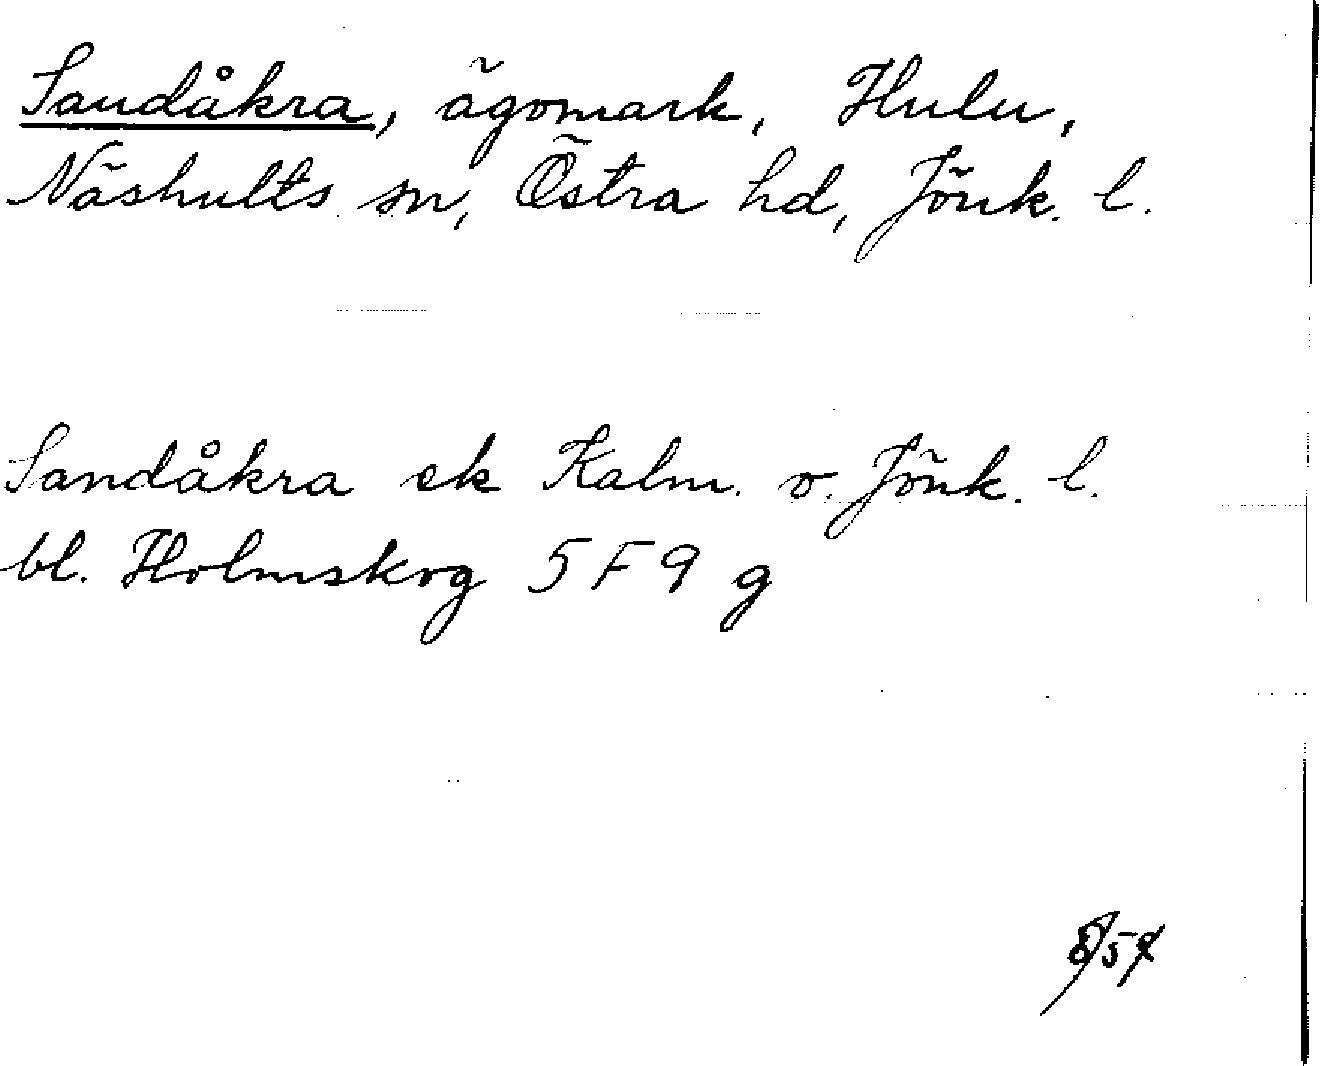 Sandåkra, ägomark, Hulu,
Näshults sn, Östra hd, Jönk. l.
Sandåkra ek Kalm. o. Jönk. l.
bl. Holmskog 5 F 9 g